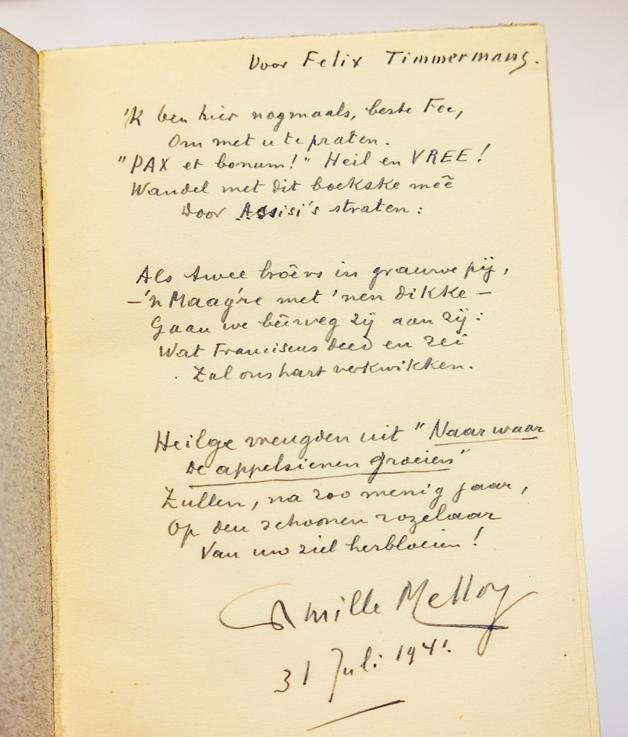 Voor Felix Timmermans.
'K ben hier nogmaals, beste Fee,
Om met u te praten.
"PAX et bonum!" Heil en VREE!
Wandel met dit boekske meê
Door Assisi's straten:
Als twee broêrs in grauwe pij,
–'n Maag're met 'nen dikke –
Gaan we bêiweg zij aan zij:
Wat Franciscus deed en zei
Zal ons hart verkwikken.
Heilge vreugden uit "Naar waar
De appelsienen groeien"
Zullen, na zoo menig jaar,
Op den schoonen rozelaar
Van uw ziel herbloeien!
Camille Melloy
31 Juli 1941.